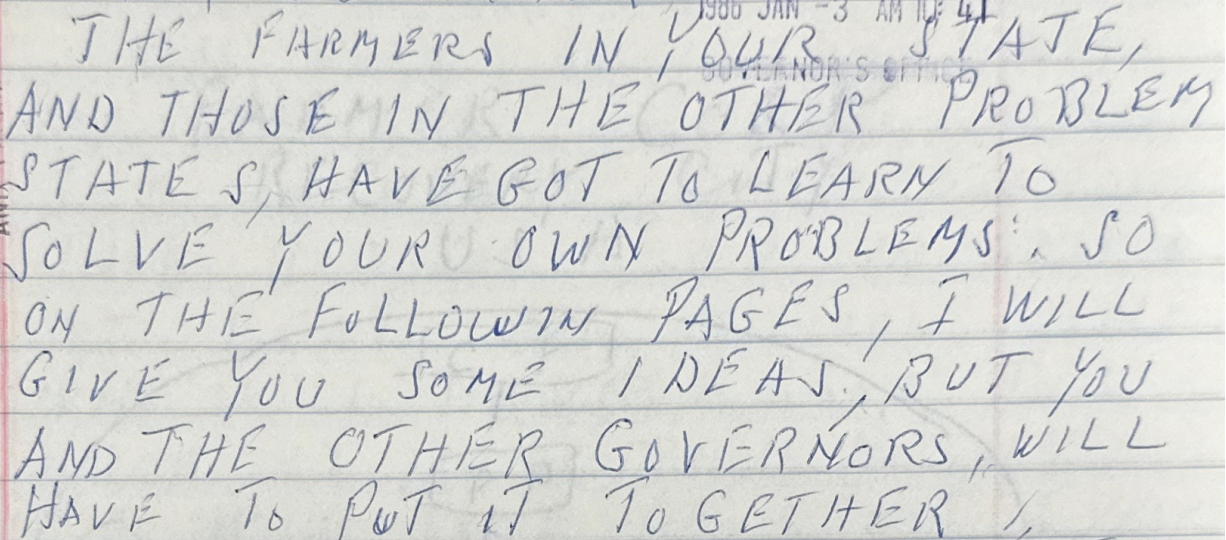 1986 JAN -3 AM 10: 41
THE FARMERS IN YOUR STATE,
GOVERNOR'S OFFICE
AND THOSE IN THE OTHER PROBLEM
STATES, HAVE GOT TO LEARN TO
SOLVE YOUR OWN PROBLEMS. SO
ON THE FOLLOWIN PAGES, I WILL
GIVE YOU SOME IDEAS, BUT YOU
AND THE OTHER GOVERNORS, WILL
HAVE TO PUT IT TOGETHER,